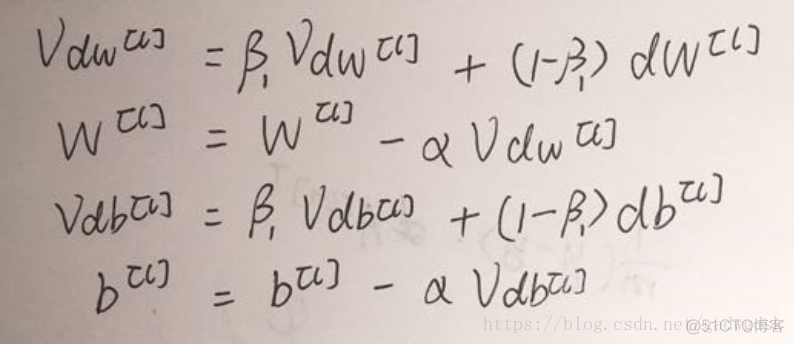 Vdw[l] = β₁ Vdw[l] + (1-β₁) dW[l]
W[l] = W[l] - α Vdw[l]
Vdb[l] = β₁ Vdb[l] + (1-β₁) db[l]
b[l] = b[l] - α Vdb[l]
https://blog.csdn.net/
@51CTO博客